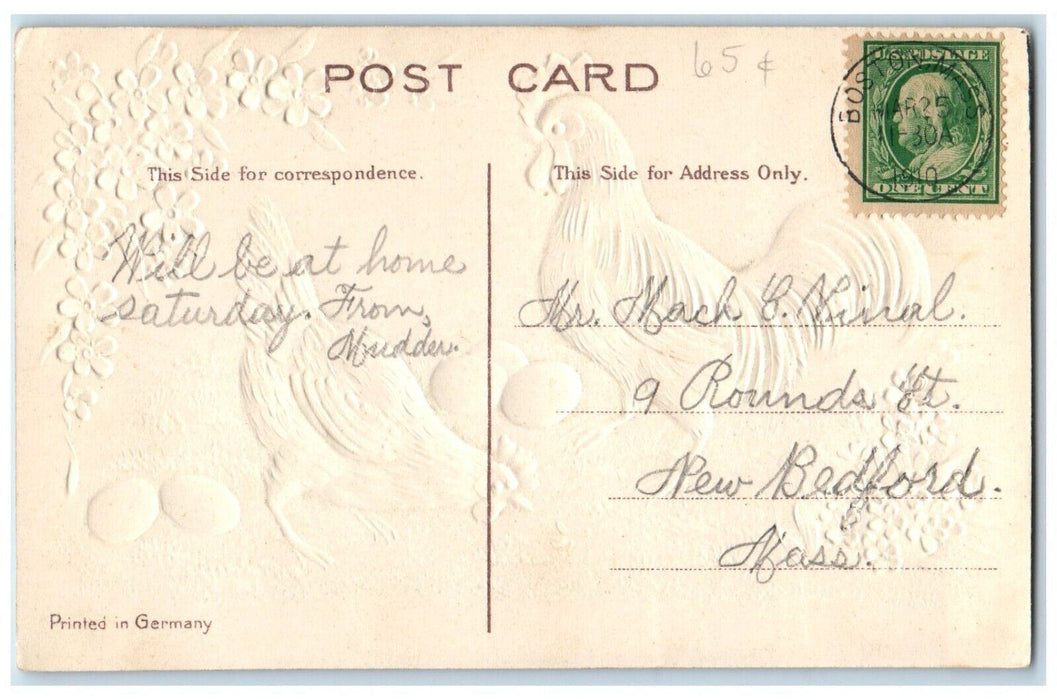 POST CARD
65¢
U.S. POSTAGE
BOSTON, MASS.
MAR 25
-30A
1910
ONE CENT
This Side for correspondence.
This Side for Address Only.
Will be at home
saturday. From,
Mudder.
Mr. Mach C. Vinal.
9 Rounds St.
New Bedford.
Mass.
Printed in Germany